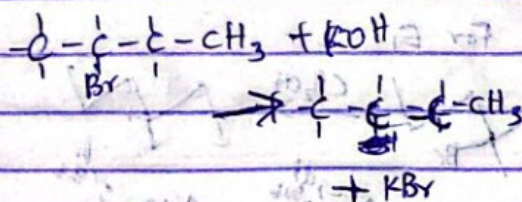 -C-C-C-CH3 + KOH
Br
→ -C-C=C-CH3
+ KBr